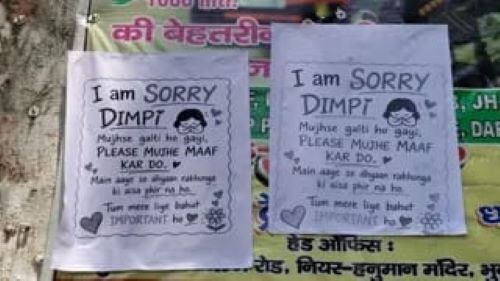 की बेहतरीन
I am SORRY
DIMPI
Mujhse galti ho gayi,
PLEASE MUJHE MAAF
KAR DO.
Main aage se dhyaan rakhunga
ki aisa phir na ho.
Tum mere liye bahut
IMPORTANT ho
I am SORRY
DIMPI
Mujhse galti ho gayi,
PLEASE MUJHE MAAF
KAR DO.
Main aage se dhyaan rakhunga
ki aisa phir na ho.
Tum mere liye bahut
IMPORTANT ho
JH
हेड ऑफिस :
रोड, नियर-हनुमान मंदिर,